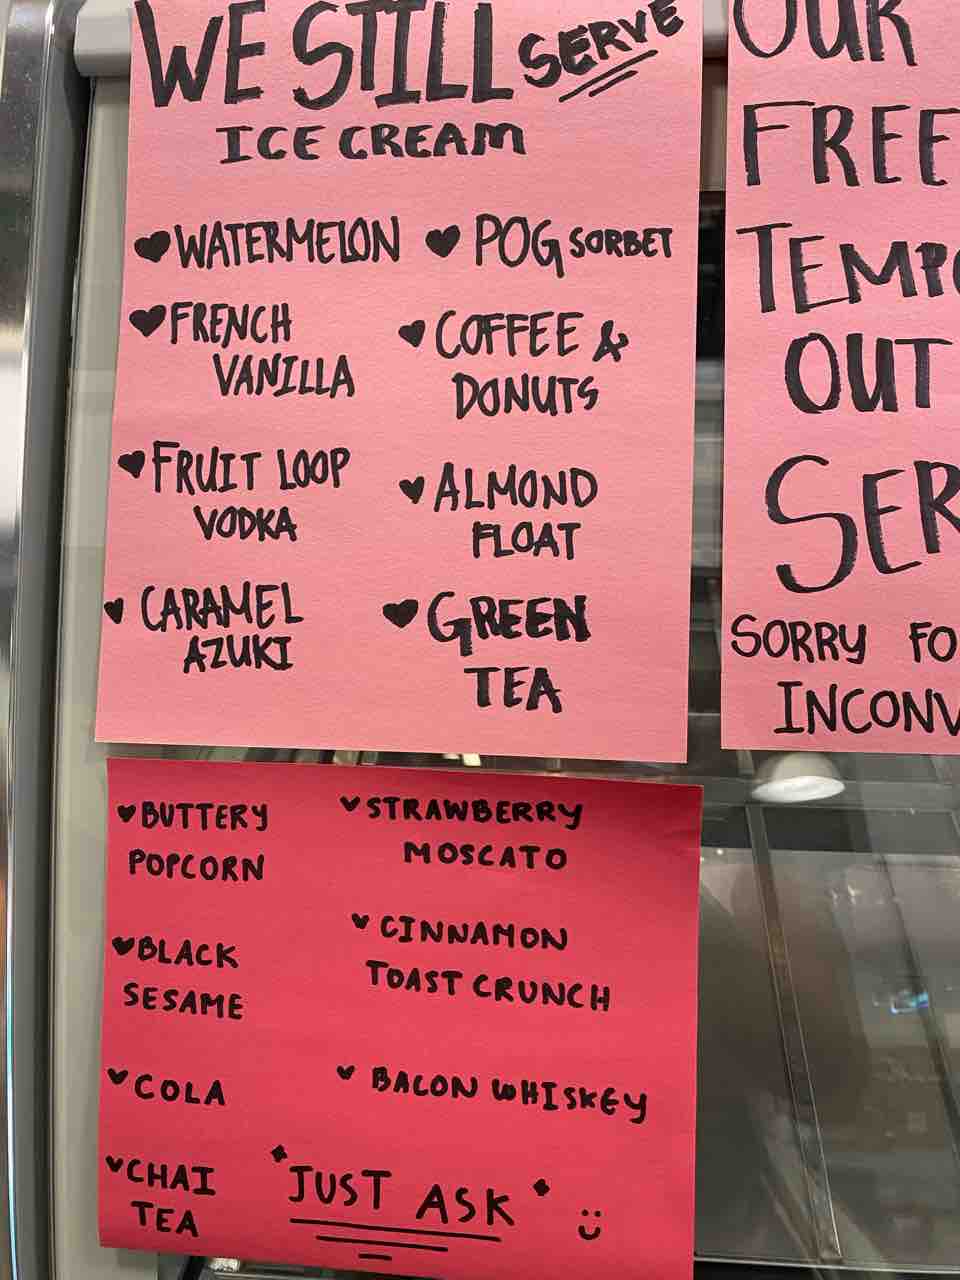 WE STILL SERVE
ICE CREAM
WATERMELON
FRENCH
VANILLA
FRUIT LOOP
VODKA
CARAMEL
AZUKI
POG SORBET
COFFEE &
DONUTS
ALMOND
FLOAT
GREEN
TEA
OUR
FREE
TEMPO
OUT
SER
SORRY FO
INCONV
BUTTERY
POPCORN
BLACK
SESAME
COLA
CHAI
TEA
STRAWBERRY
MOSCATO
CINNAMON
TOAST CRUNCH
BACON WHISKEY
JUST ASK